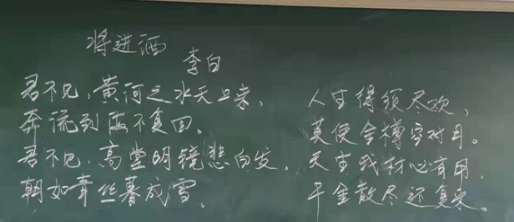 将进酒
李白
君不见,黄河之水天上来,
奔流到海不复回。
君不见,高堂明镜悲白发,
朝如青丝暮成雪。
人生得须尽欢,
莫使金樽空对月。
天生我材必有用,
千金散尽还复来。